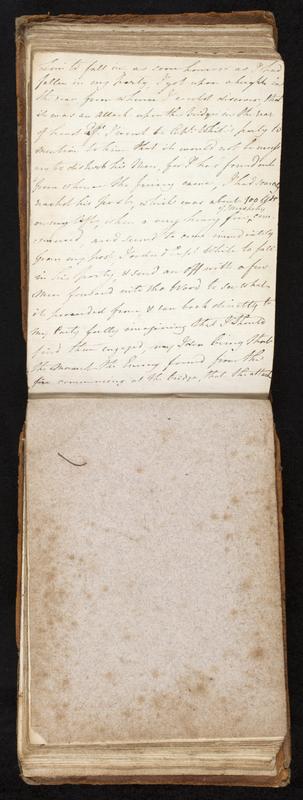 him to fall in, as soon however as I had
fallen in my Party, I got upon a height in
the rear from whence I could discover that
it was an attack upon the Bridge in the rear
of head Qrs, I went to Capt. While's party to
mention to him that it would not be necess
ary to disturb his Men, for I had found out
from whence the firing came, I had scarcely
reached his Party, which was about 100 Yds
on my left, when a very heavy fire of Musketry com
menced, and seemed to come immediately
from my post I ordered Capt. While to fall
in his Party, & send an off with a few
Men forward into the Wood to see what
it proceeded from, & ran back directly to
my Party fully imagining that I should
find them engaged, my Idea being that
the moment the Enemy found from the
fire commencing at the bridge, that the attack